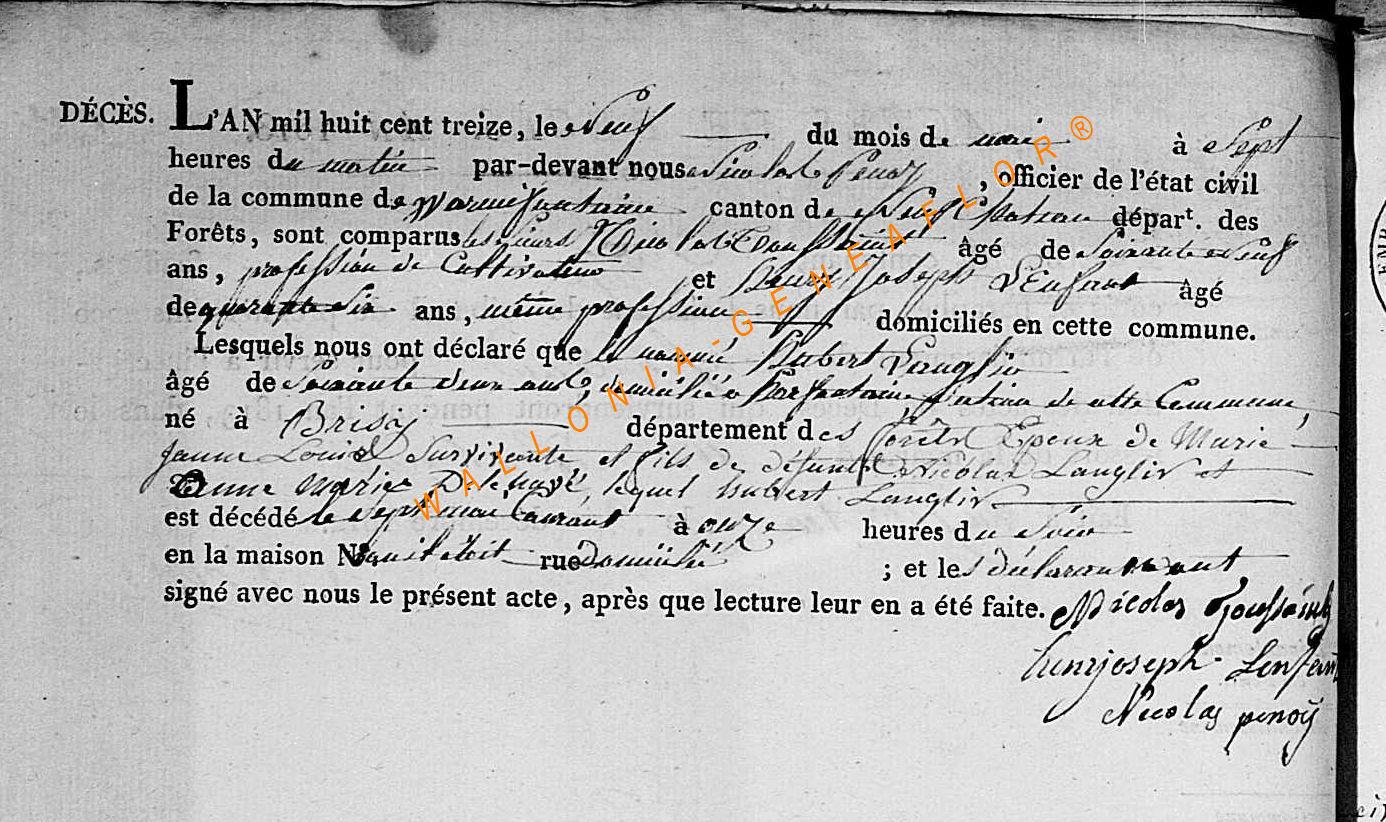 DÉCÈS. L'AN mil huit cent treize, le Neuf du mois de mai à Sept
heures du matin par-devant nous Nicolas Penoy, officier de l'état civil
de la commune de Warmifontaine canton de Neufchateau départ. des
Forêts, sont comparus les sieurs Nicolas Toussaint âgé de Soixante Neuf
ans, profession de Cultivateur et Henry Joseph L'Enfant âgé
de quarante Six ans, même profession domiciliés en cette commune.
Lesquels nous ont déclaré que le nommé Hubert Langlir
âgé de Soixante deux ans, domicilié a section de cette Commune,
né à Brisy département des forêts Epoux de Marie
Jeanne Louis Survivante et fils de défunts Nicolas Langlir et
Anne Marie lequel hubert Langlir
est décédé le Sept mai Courant à onze heures du Soir
en la maison N° rue Domicilié ; et les déclarants ont
signé avec nous le présent acte, après que lecture leur en a été faite. Nicolas Toussaint
henrijoseph Lenfant
Nicolas penoij
WALLONIA-GENEAFLOR®